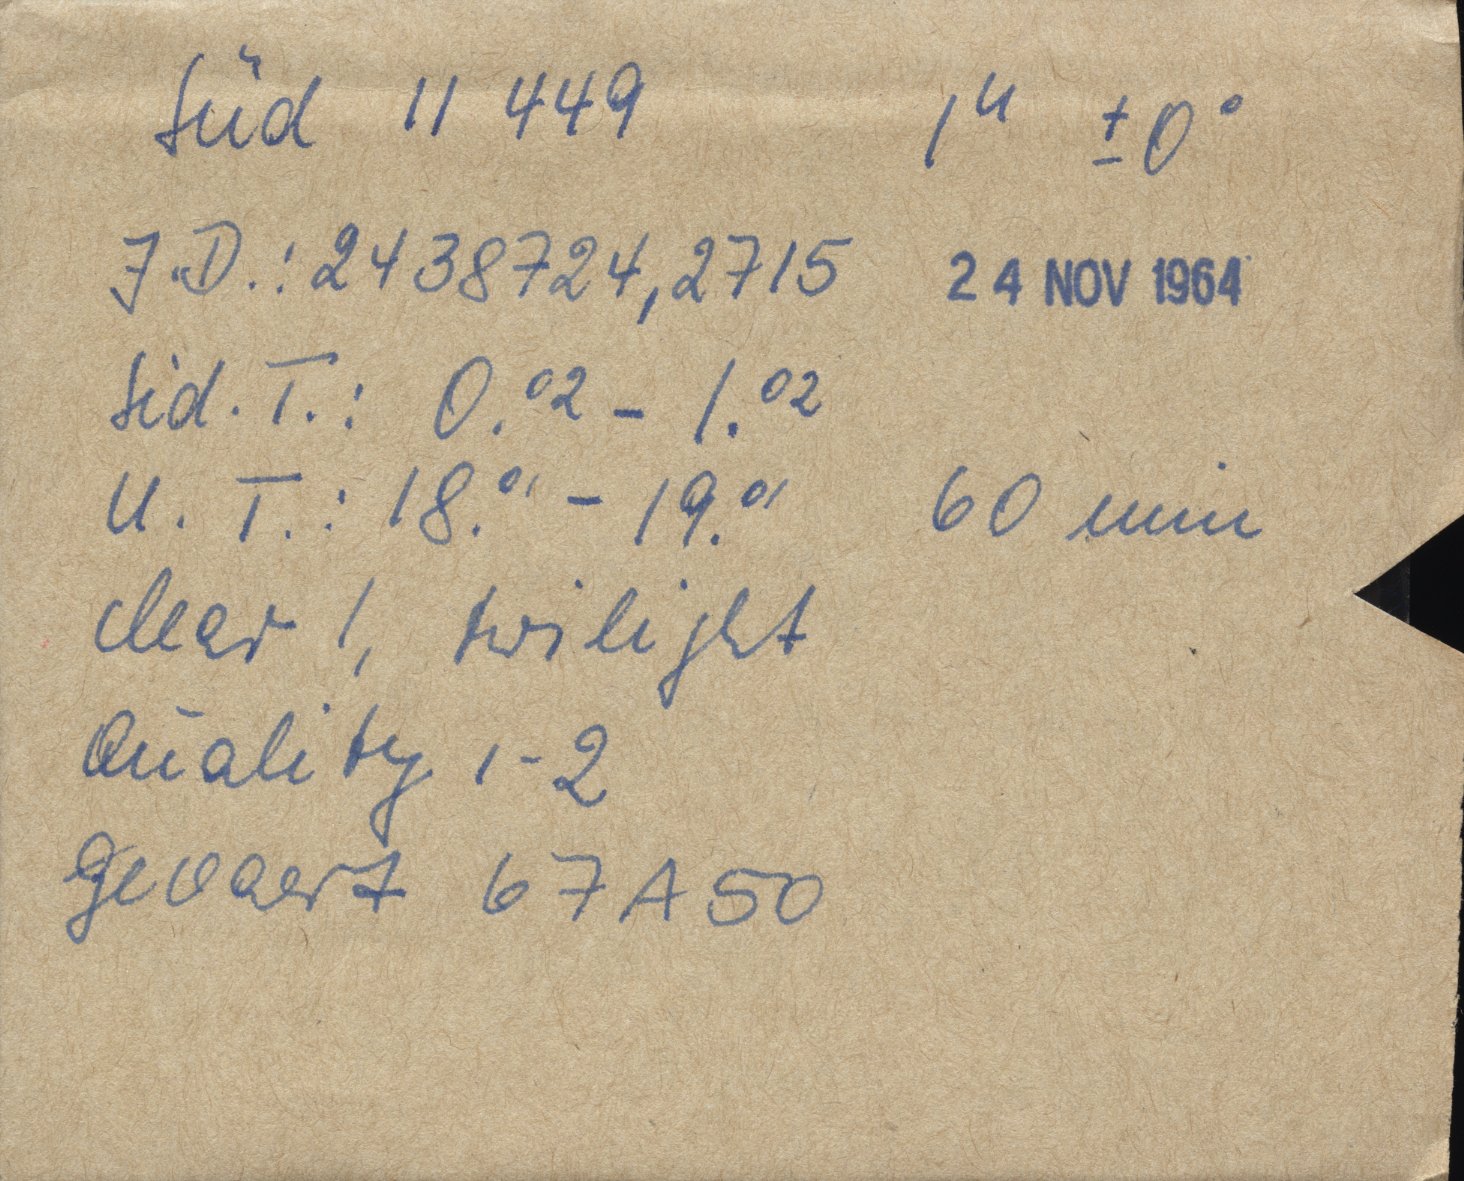 Süd 11 449 1ᵘ ±0°
J.D.: 2438724,2715 24 NOV 1964
Sid. T.: 0.⁰² – 1.⁰²
U. T.: 18.⁰¹ – 19.⁰¹ 60 min
clear 1, twilight
Quality 1-2
Gevaert 67A50